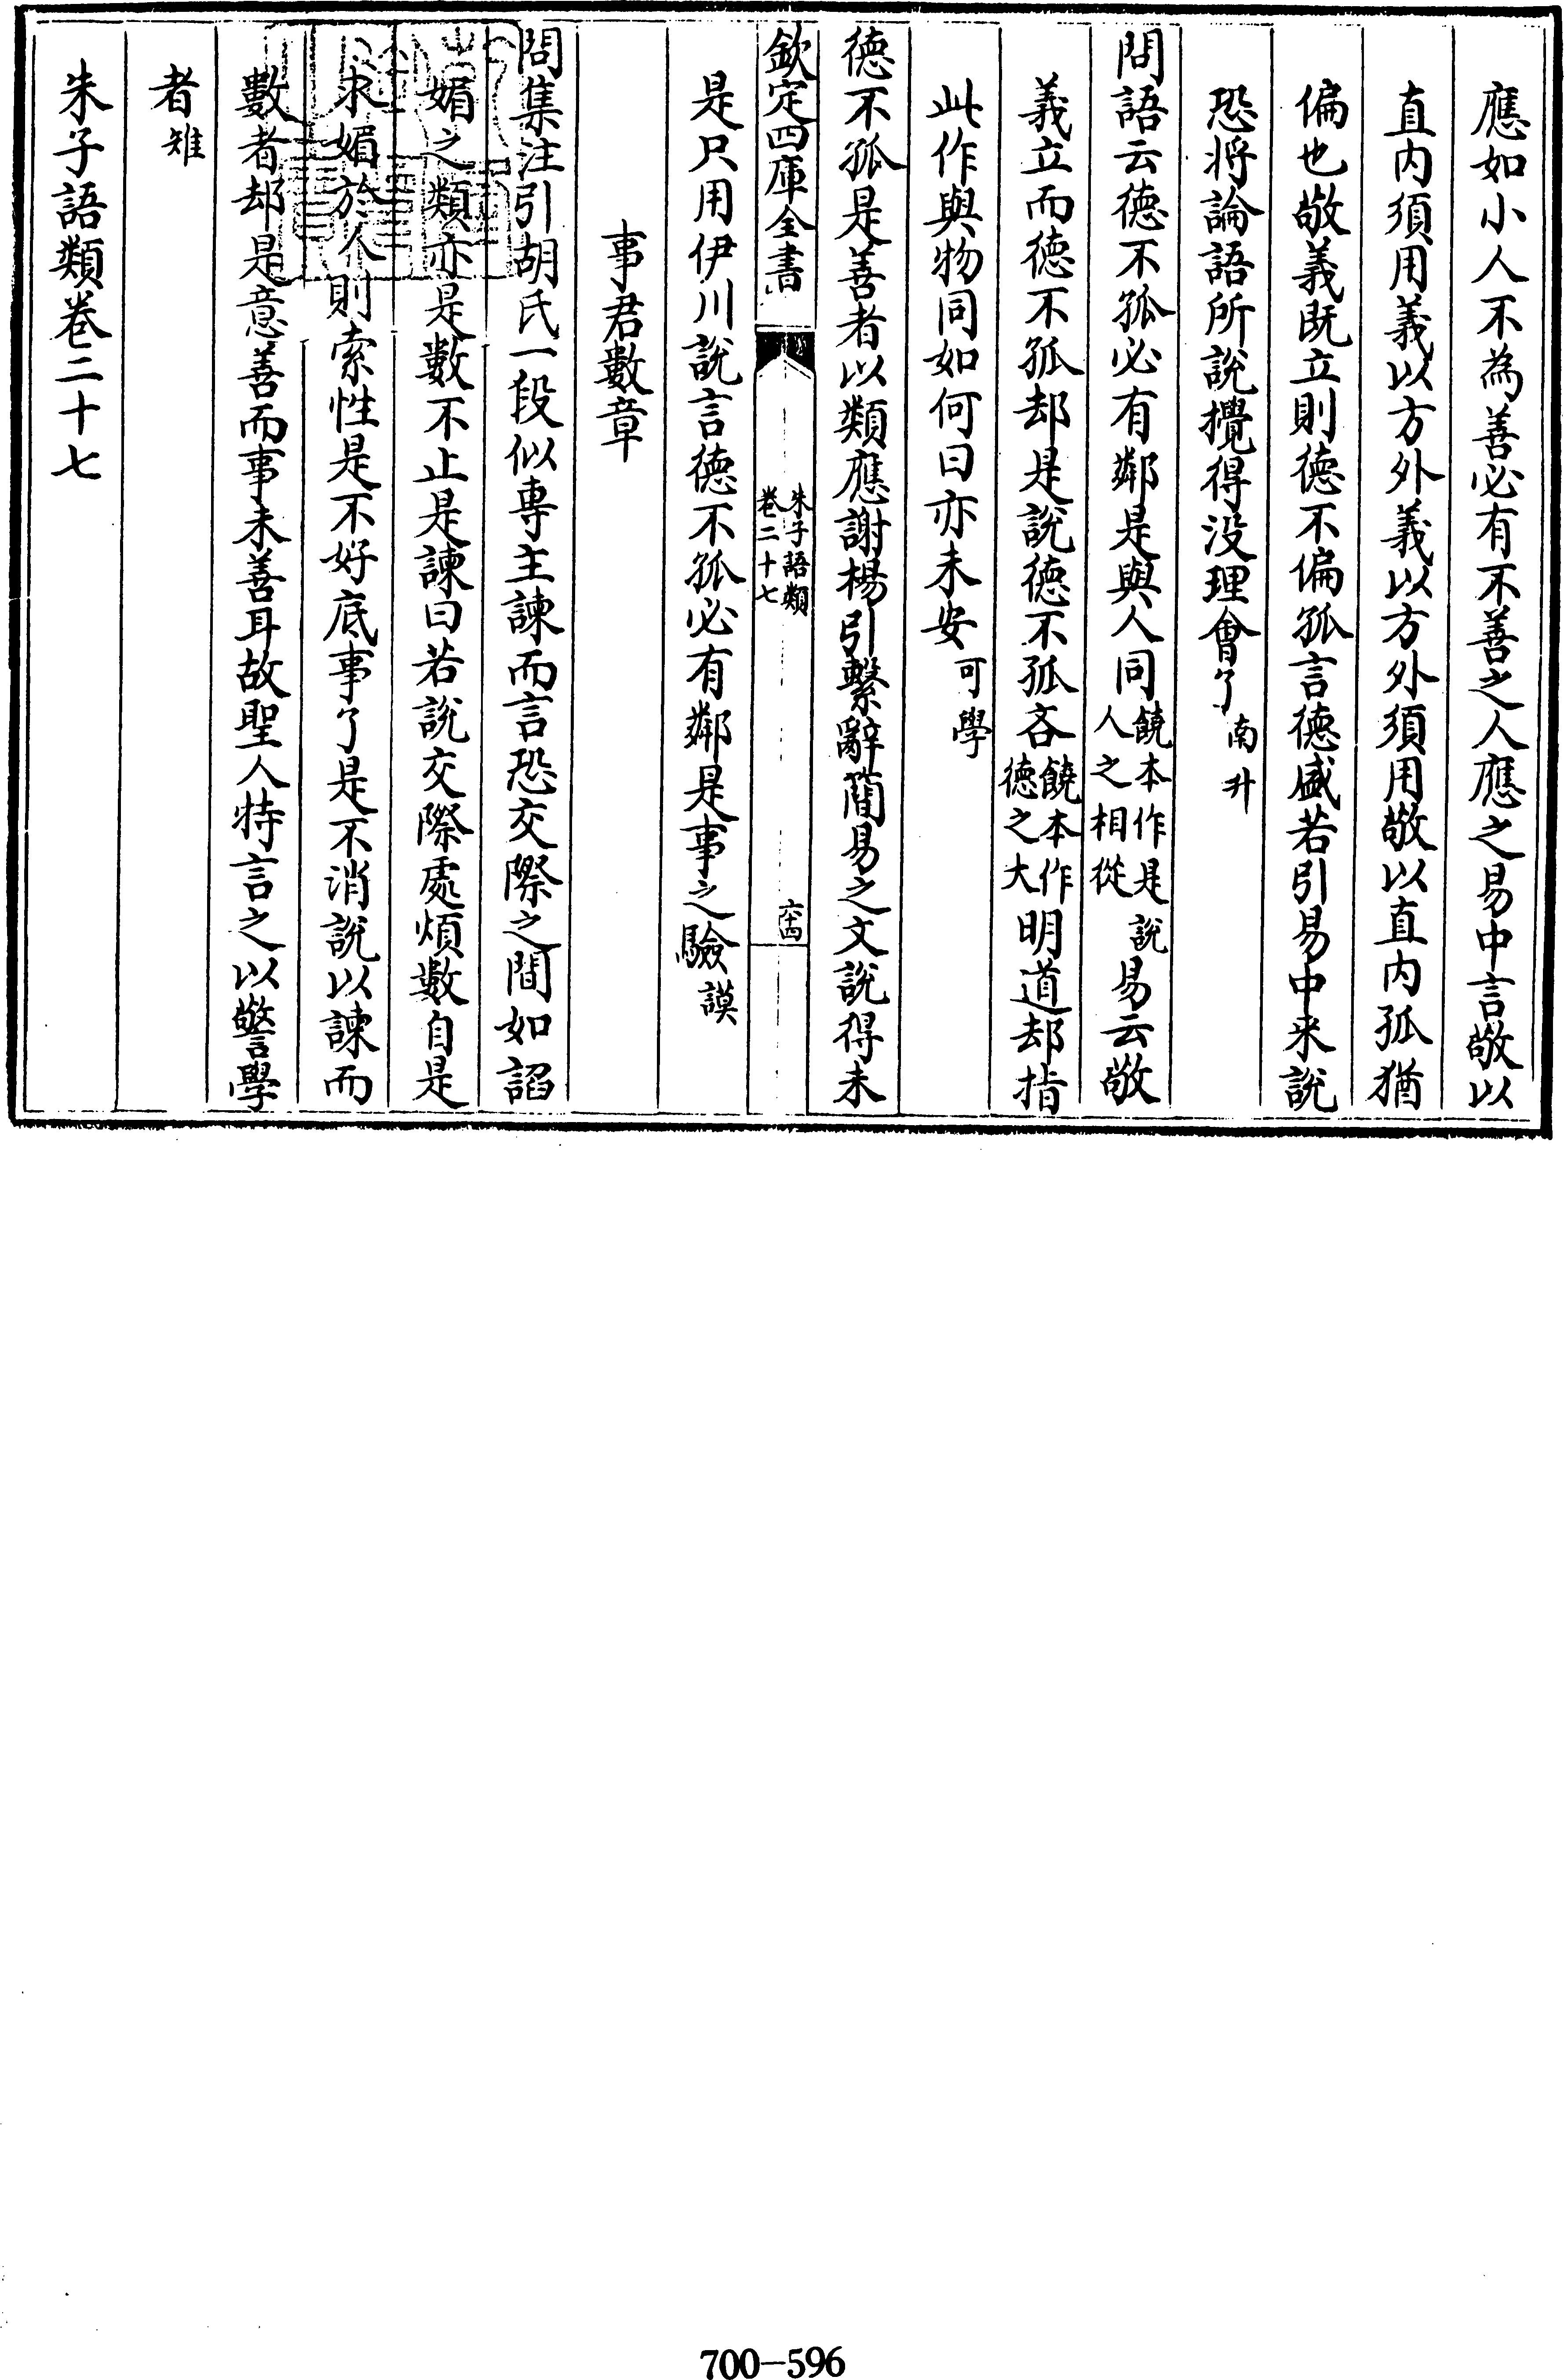 應如小人不為善必有不善之人應之易中言敬以
直内須用義以方外義以方外須用敬以直内孤猶
偏也敬義既立則德不偏孤言德盛若引易中来說
恐將論語所說攪得没理會了南升
問語云德不孤必有鄰是與人同饒本作是說人之相從易云敬
義立而德不孤却是說德不孤吝饒本作德之大明道却指
此作與物同如何曰亦未安可學
德不孤是善者以類應謝楊引繫辭簡易之文說得未
欽定四庫全書
朱子語類
卷二十七
六四
是只用伊川說言德不孤必有鄰是事之驗謨
事君數章
問集注引胡氏一段似專主諫而言恐交際之間如諂
媚之類亦是數不止是諫曰若說交際處煩數自是
求媚於人則索性是不好底事了是不消說以諫而
數者却是意善而事未善耳故聖人特言之以警學
者雉
朱子語類卷二十七
700-596